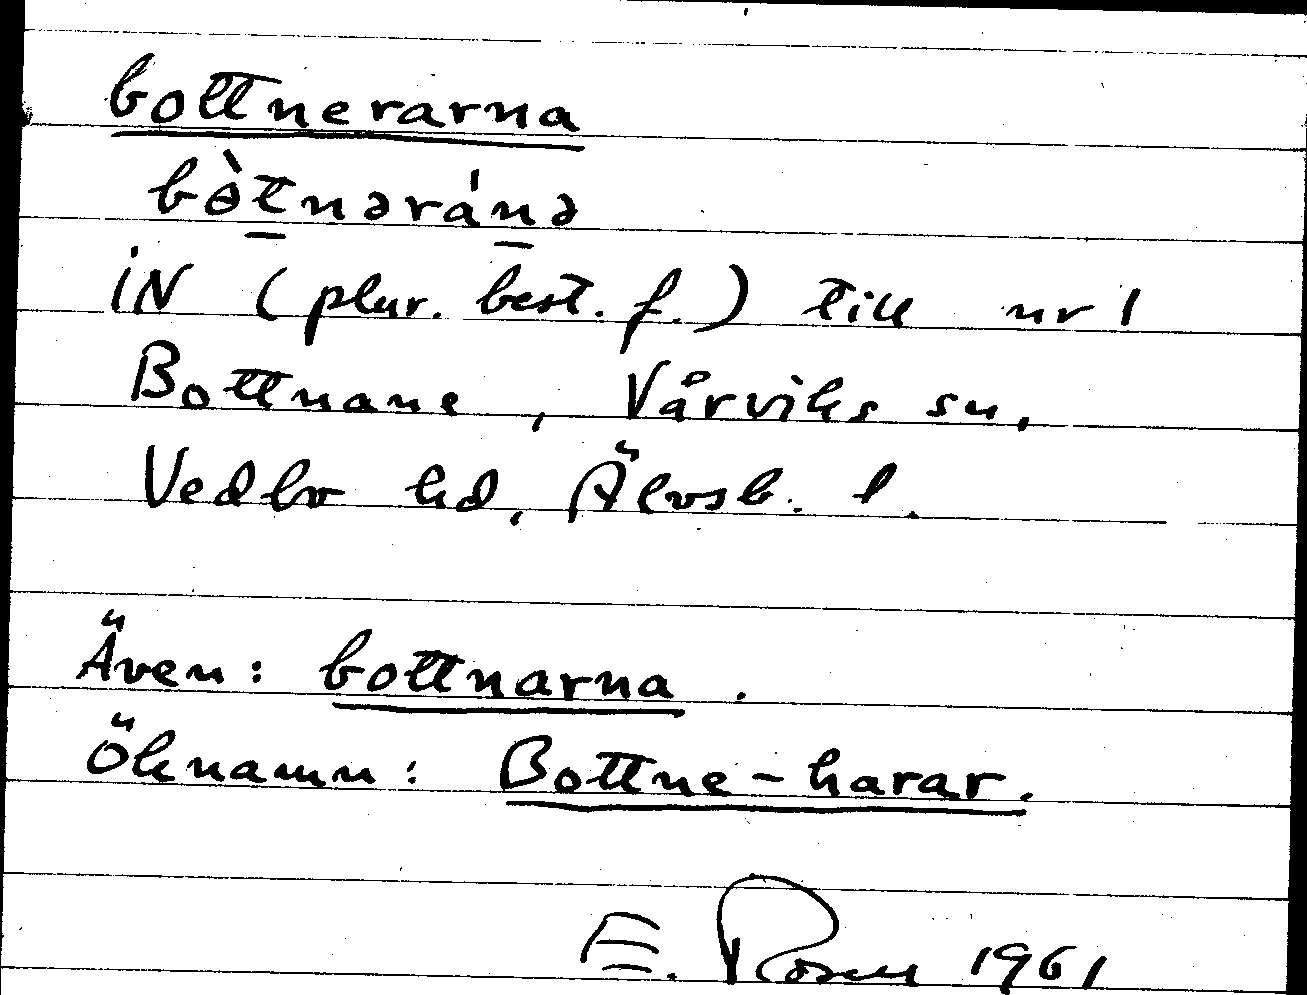 bottnerarna
bɵ̀t̠nərán̠ə
iN (plur. best. f.) till nr 1
Bottnane, Vårviks sn,
Vedbo hd, Älvsb. l.
Även: bottnarna.
Öknamn: Bottne-harar.
E. Rosen 1961